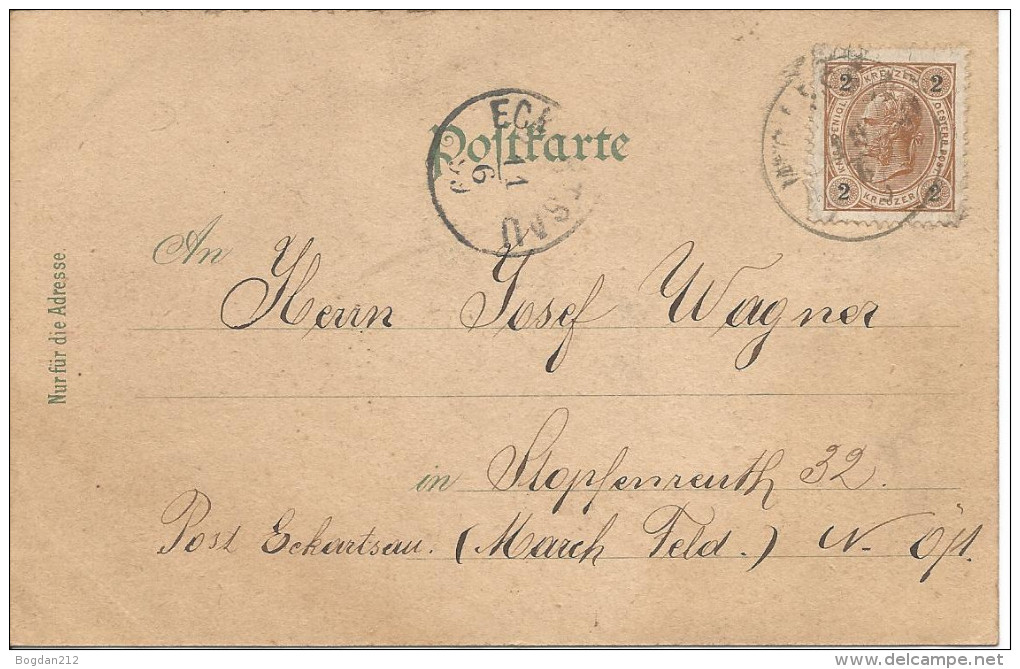 Postkarte
2 KREUZER 2
2 KREUZER 2
ECK
11
6
TSAU
Nur für die Adresse.
An Herrn Josef Wagner
in Stopfenreuth 32.
Post Eckartsau. (March Feld.) N. Öst.
Bogdan212
delcampe.net